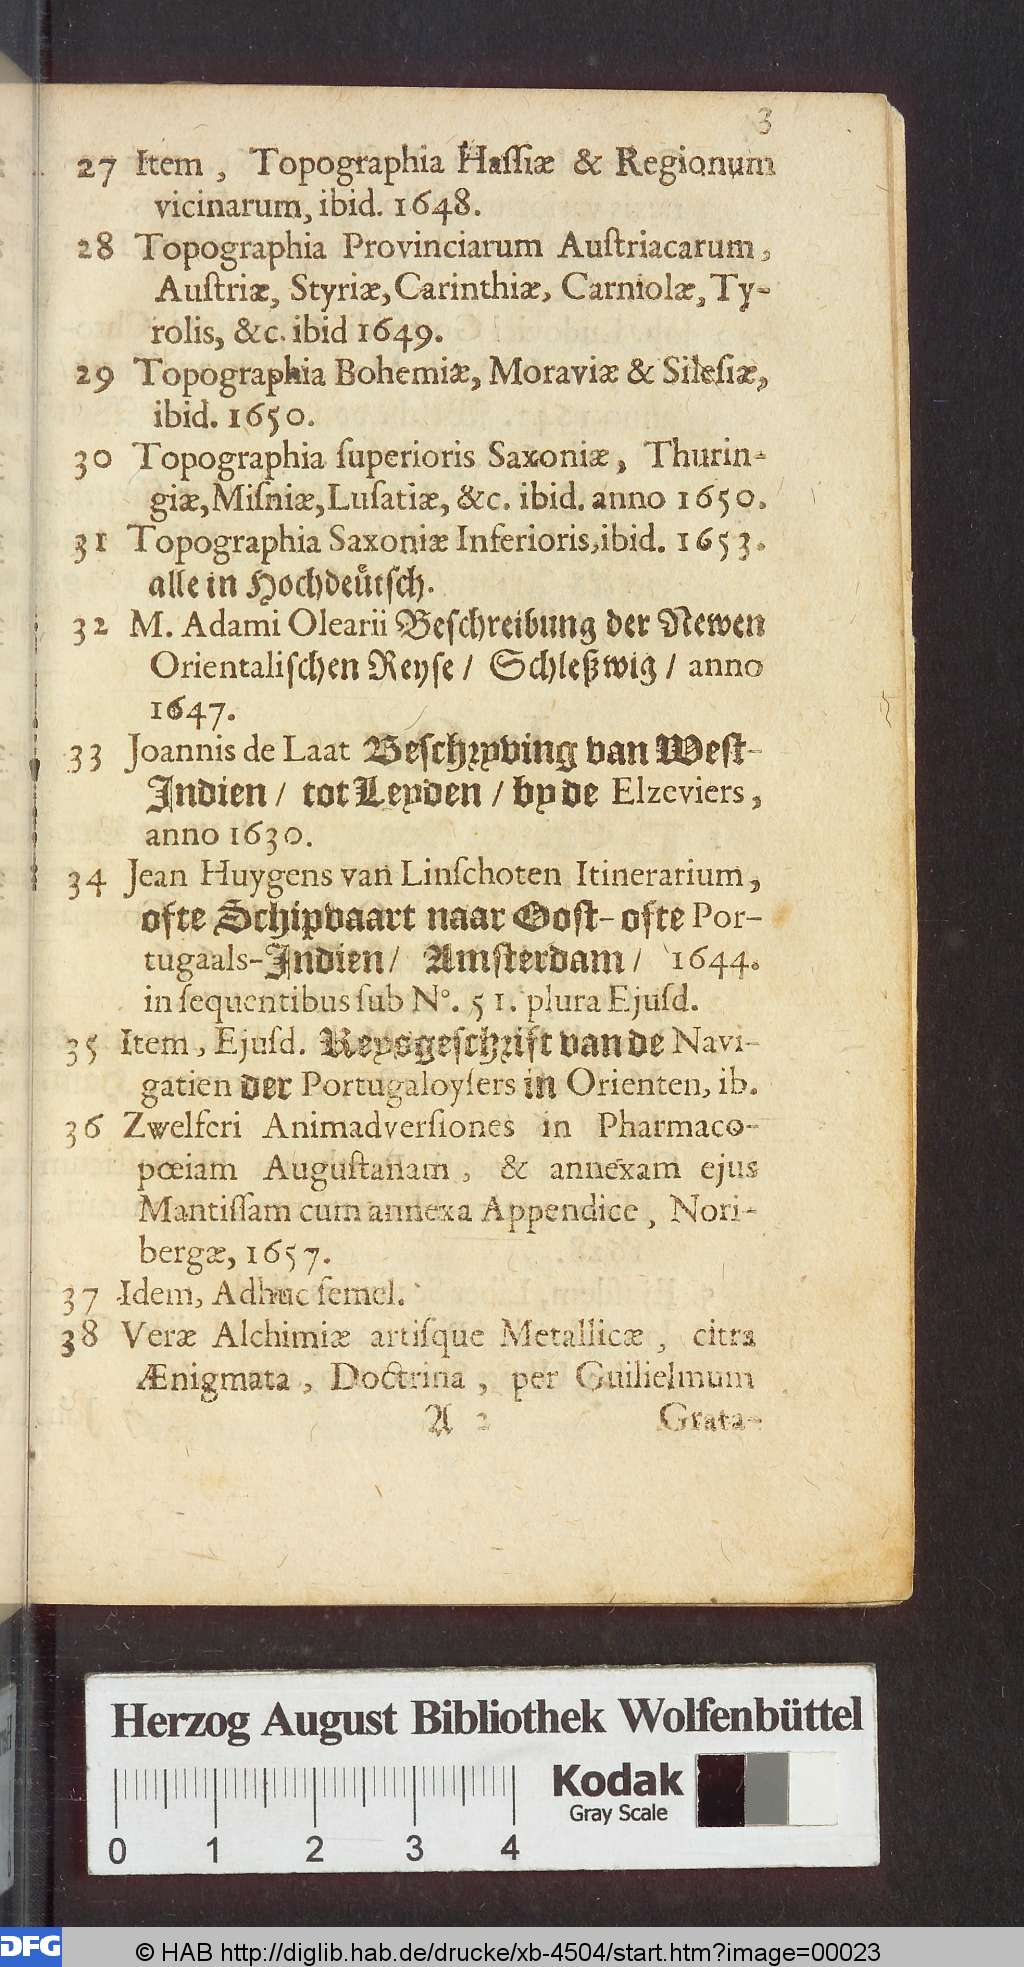 3
27 Item, Topographia Haſſiæ & Regionum
vicinarum, ibid. 1648.
28 Topographia Provinciarum Auſtriacarum,
Auſtriæ, Styriæ, Carinthiæ, Carniolæ, Ty-
rolis, &c. ibid 1649.
29 Topographia Bohemiæ, Moraviæ & Sileſiæ,
ibid. 1650.
30 Topographia ſuperioris Saxoniæ, Thurin-
giæ, Miſniæ, Luſatiæ, &c. ibid. anno 1650.
31 Topographia Saxoniæ Inferioris, ibid. 1653.
alle in Hochdeütſch.
32 M. Adami Olearii Beſchreibung der Newen
Orientaliſchen Reyſe / Schleßwig / anno
1647.
33 Joannis de Laat Beſchryving van Weſt-
Indien / tot Leyden / by de Elzeviers,
anno 1630.
34 Jean Huygens van Linſchoten Itinerarium,
ofte Schipvaart naar Ooſt- ofte Por-
tugaals-Indien / Amſterdam / 1644.
in ſequentibus ſub N°. 51. plura Ejuſd.
35 Item, Ejuſd. Reysgeſchrift van de Navi-
gatien der Portugaloyſers in Orienten, ib.
36 Zwelferi Animadverſiones in Pharmaco-
pœiam Auguſtanam, & annexam ejus
Mantiſſam cum annexa Appendice, Nori-
bergæ, 1657.
37 Idem, Adhuc ſemel.
38 Veræ Alchimiæ artiſque Metallicæ, citra
Ænigmata, Doctrina, per Guilielmum
A 2 Grata-
Herzog August Bibliothek Wolfenbüttel
Kodak
Gray Scale
0 1 2 3 4
DFG © HAB http://diglib.hab.de/drucke/xb-4504/start.htm?image=00023